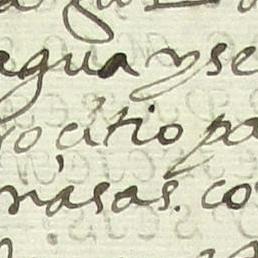 agua y se
ocitio pa
nasas. co